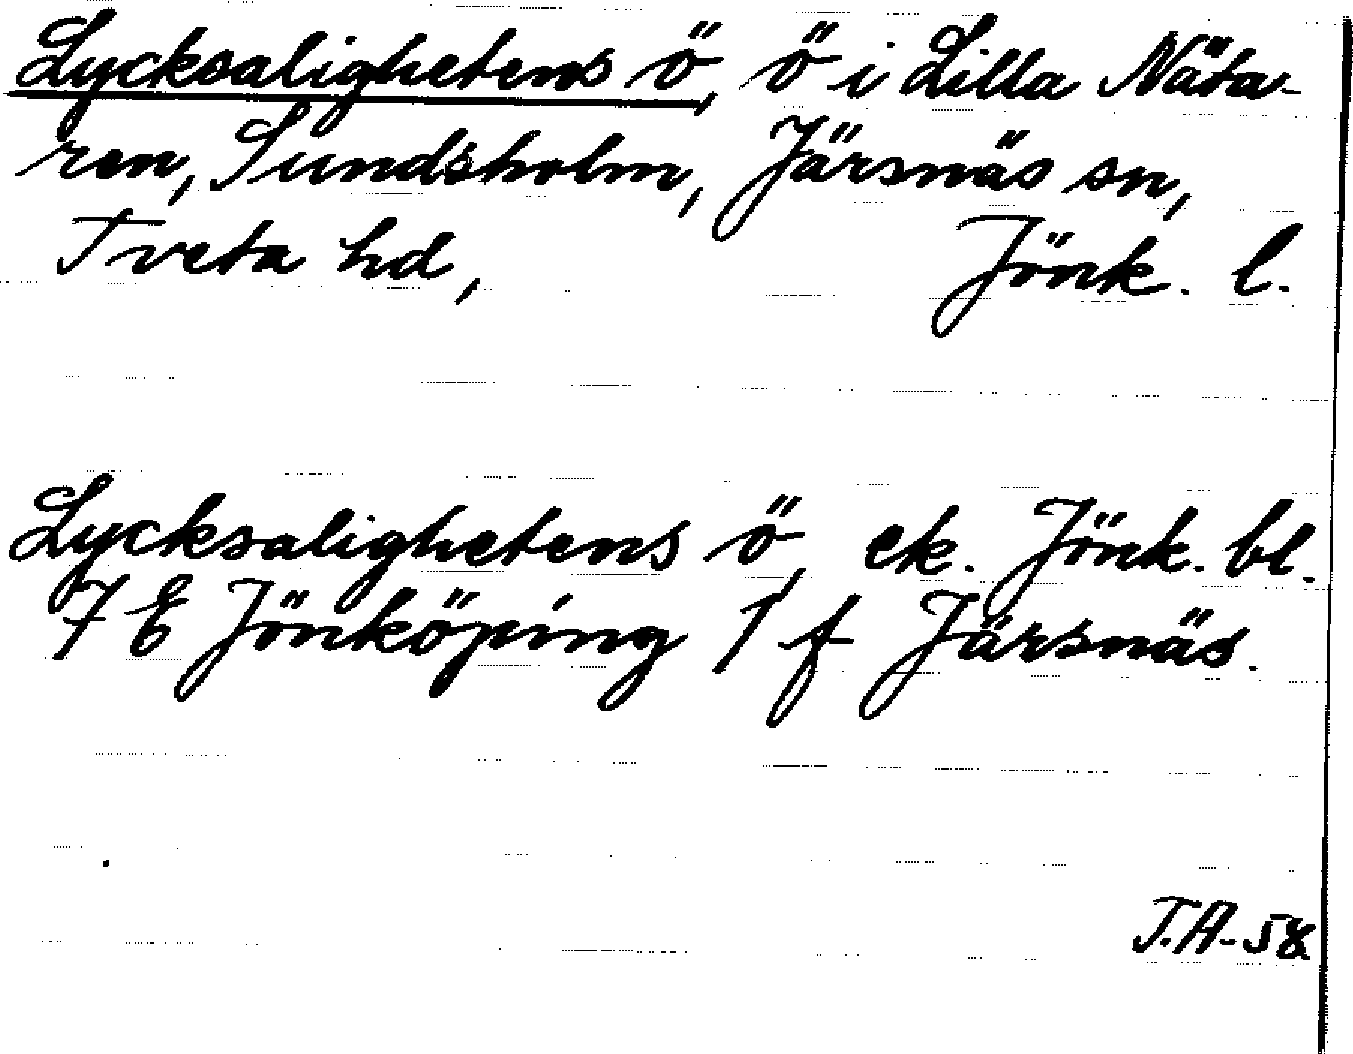 Lycksalighetens ö, ö i Lilla Näta-
ren, Sundsholm, Järsnäs sn,
Tveta hd, Jönk. l.
Lycksalighetens ö, ek. Jönk. bl.
7 E Jönköping 1 f Järsnäs.
T.A-58